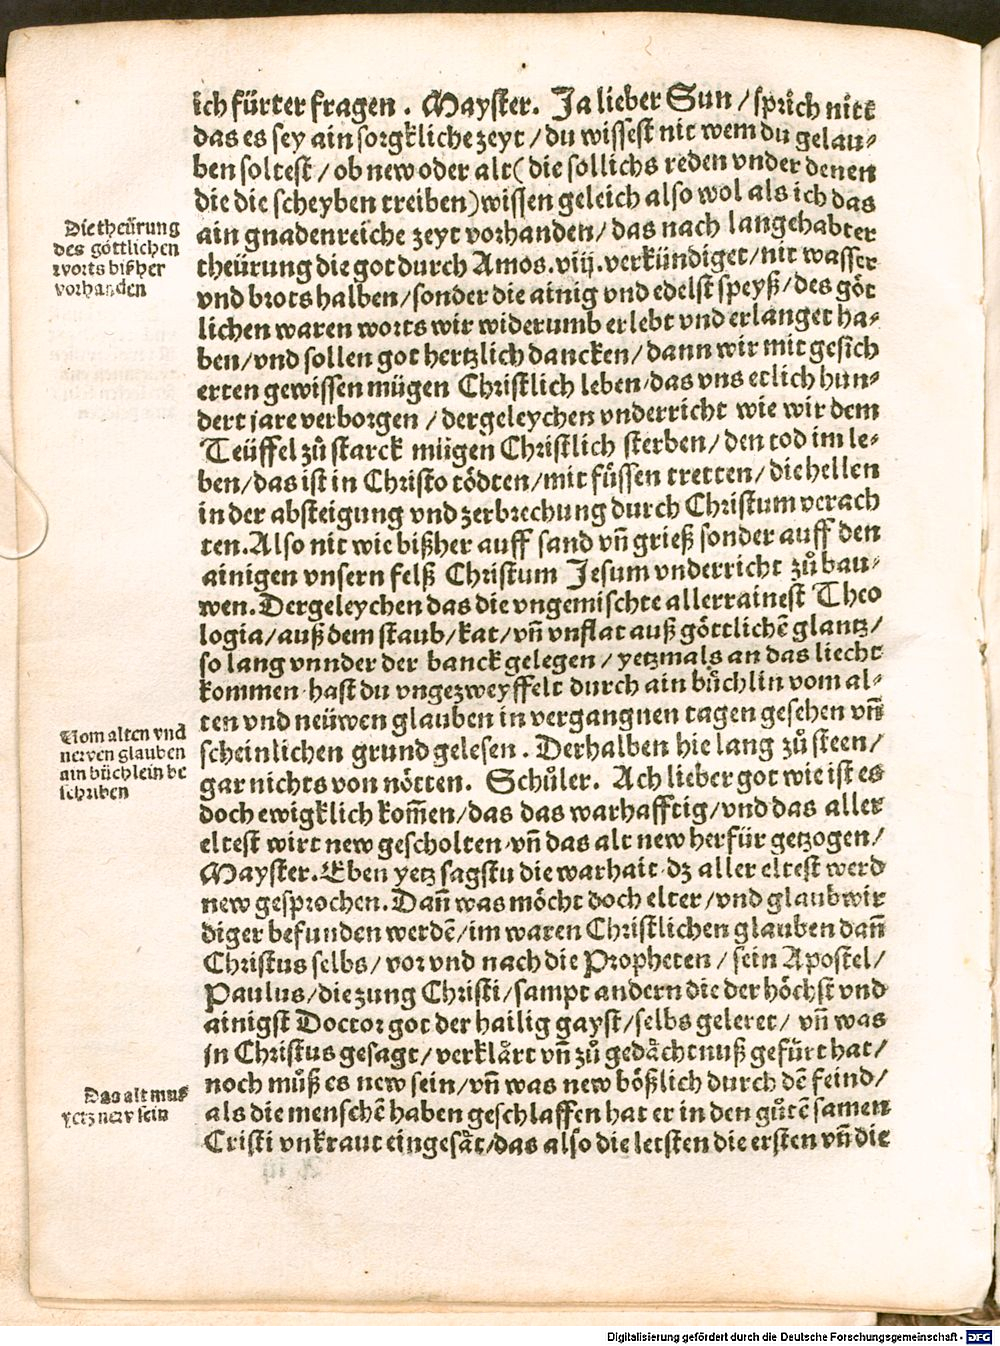 ich fürter fragen. Mayster. Ja lieber Sun/sprich nitt
das es sey ain sorgkliche zeyt/du wissest nit wem du gelau⸗
ben soltest/ob new oder alt(die sollichs reden vnder denen
die die scheyben treiben)wissen geleich also wol als ich das
ain gnadenreiche zeyt vorhanden/das nach langehabter
theürung die got durch Amos.viij.verkündiget/nit wasser
vnd brots halben/sonder die ainig vnd edelst speyß/des göt
lichen waren worts wir widerumb erlebt vnd erlanget ha⸗
ben/vnd sollen got hertzlich dancken/dann wir mit gesich
erten gewissen mügen Christlich leben/das vns etlich hun⸗
dert jare verborgen/dergeleychen vnderricht wie wir dem
Teüffel zů starck mügen Christlich sterben/den tod im le⸗
ben/das ist in Christo tödten/mit füssen tretten/die hellen
in der absteigung vnd zerbrechung durch Christum verach
ten.Also nit wie bißher auff sand vñ grieß sonder auff den
ainigen vnsern felß Christum Jesum vnderricht zů bau⸗
wen.Dergeleychen das die vngemischte allerrainest Theo
logia/auß dem staub/kat/vñ vnflat auß göttlichē glantz/
so lang vnnder der banck gelegen/yetzmals an das liecht
kommen hast du vngezweyffelt durch ain büchlin vom al⸗
ten vnd neüwen glauben in vergangnen tagen gesehen vñ
scheinlichen grund gelesen. Derhalben hie lang zů steen/
gar nichts von nötten. Schůler. Ach lieber got wie ist es
doch ewigklich kom̃en/das das warhafftig/vnd das aller
eltest wirt new gescholten vñ das alt new herfür getzogen/
Mayster.Eben yetz sagstu die warhait dz aller eltest werd
new gesprochen.Dañ was möcht doch elter/vnd glaubwir
diger befunden werdē/im waren Christlichen glauben dañ
Christus selbs/vor vnd nach die Propheten/sein Apostel/
Paulus/die zung Christi/sampt andern die der höchst vnd
ainigst Doctor got der hailig gayst/selbs geleret/vñ was
jn Christus gesagt/verklärt vñ zů gedächtnuß gefürt hat/
noch můß es new sein/vñ was new bößlich durch dē feind/
als die menschē haben geschlaffen hat er in den gůtē samen
Cristi vnkraut eingesät/das also die letsten die ersten vñ die
Die theürung
des göttlichen
worts bißher
vorhanden
Vom alten vnd
newen glauben
ain büchlein be
schriben
Das alt muß
yetz new sein
Digitalisierung gefördert durch die Deutsche Forschungsgemeinschaft - DFG